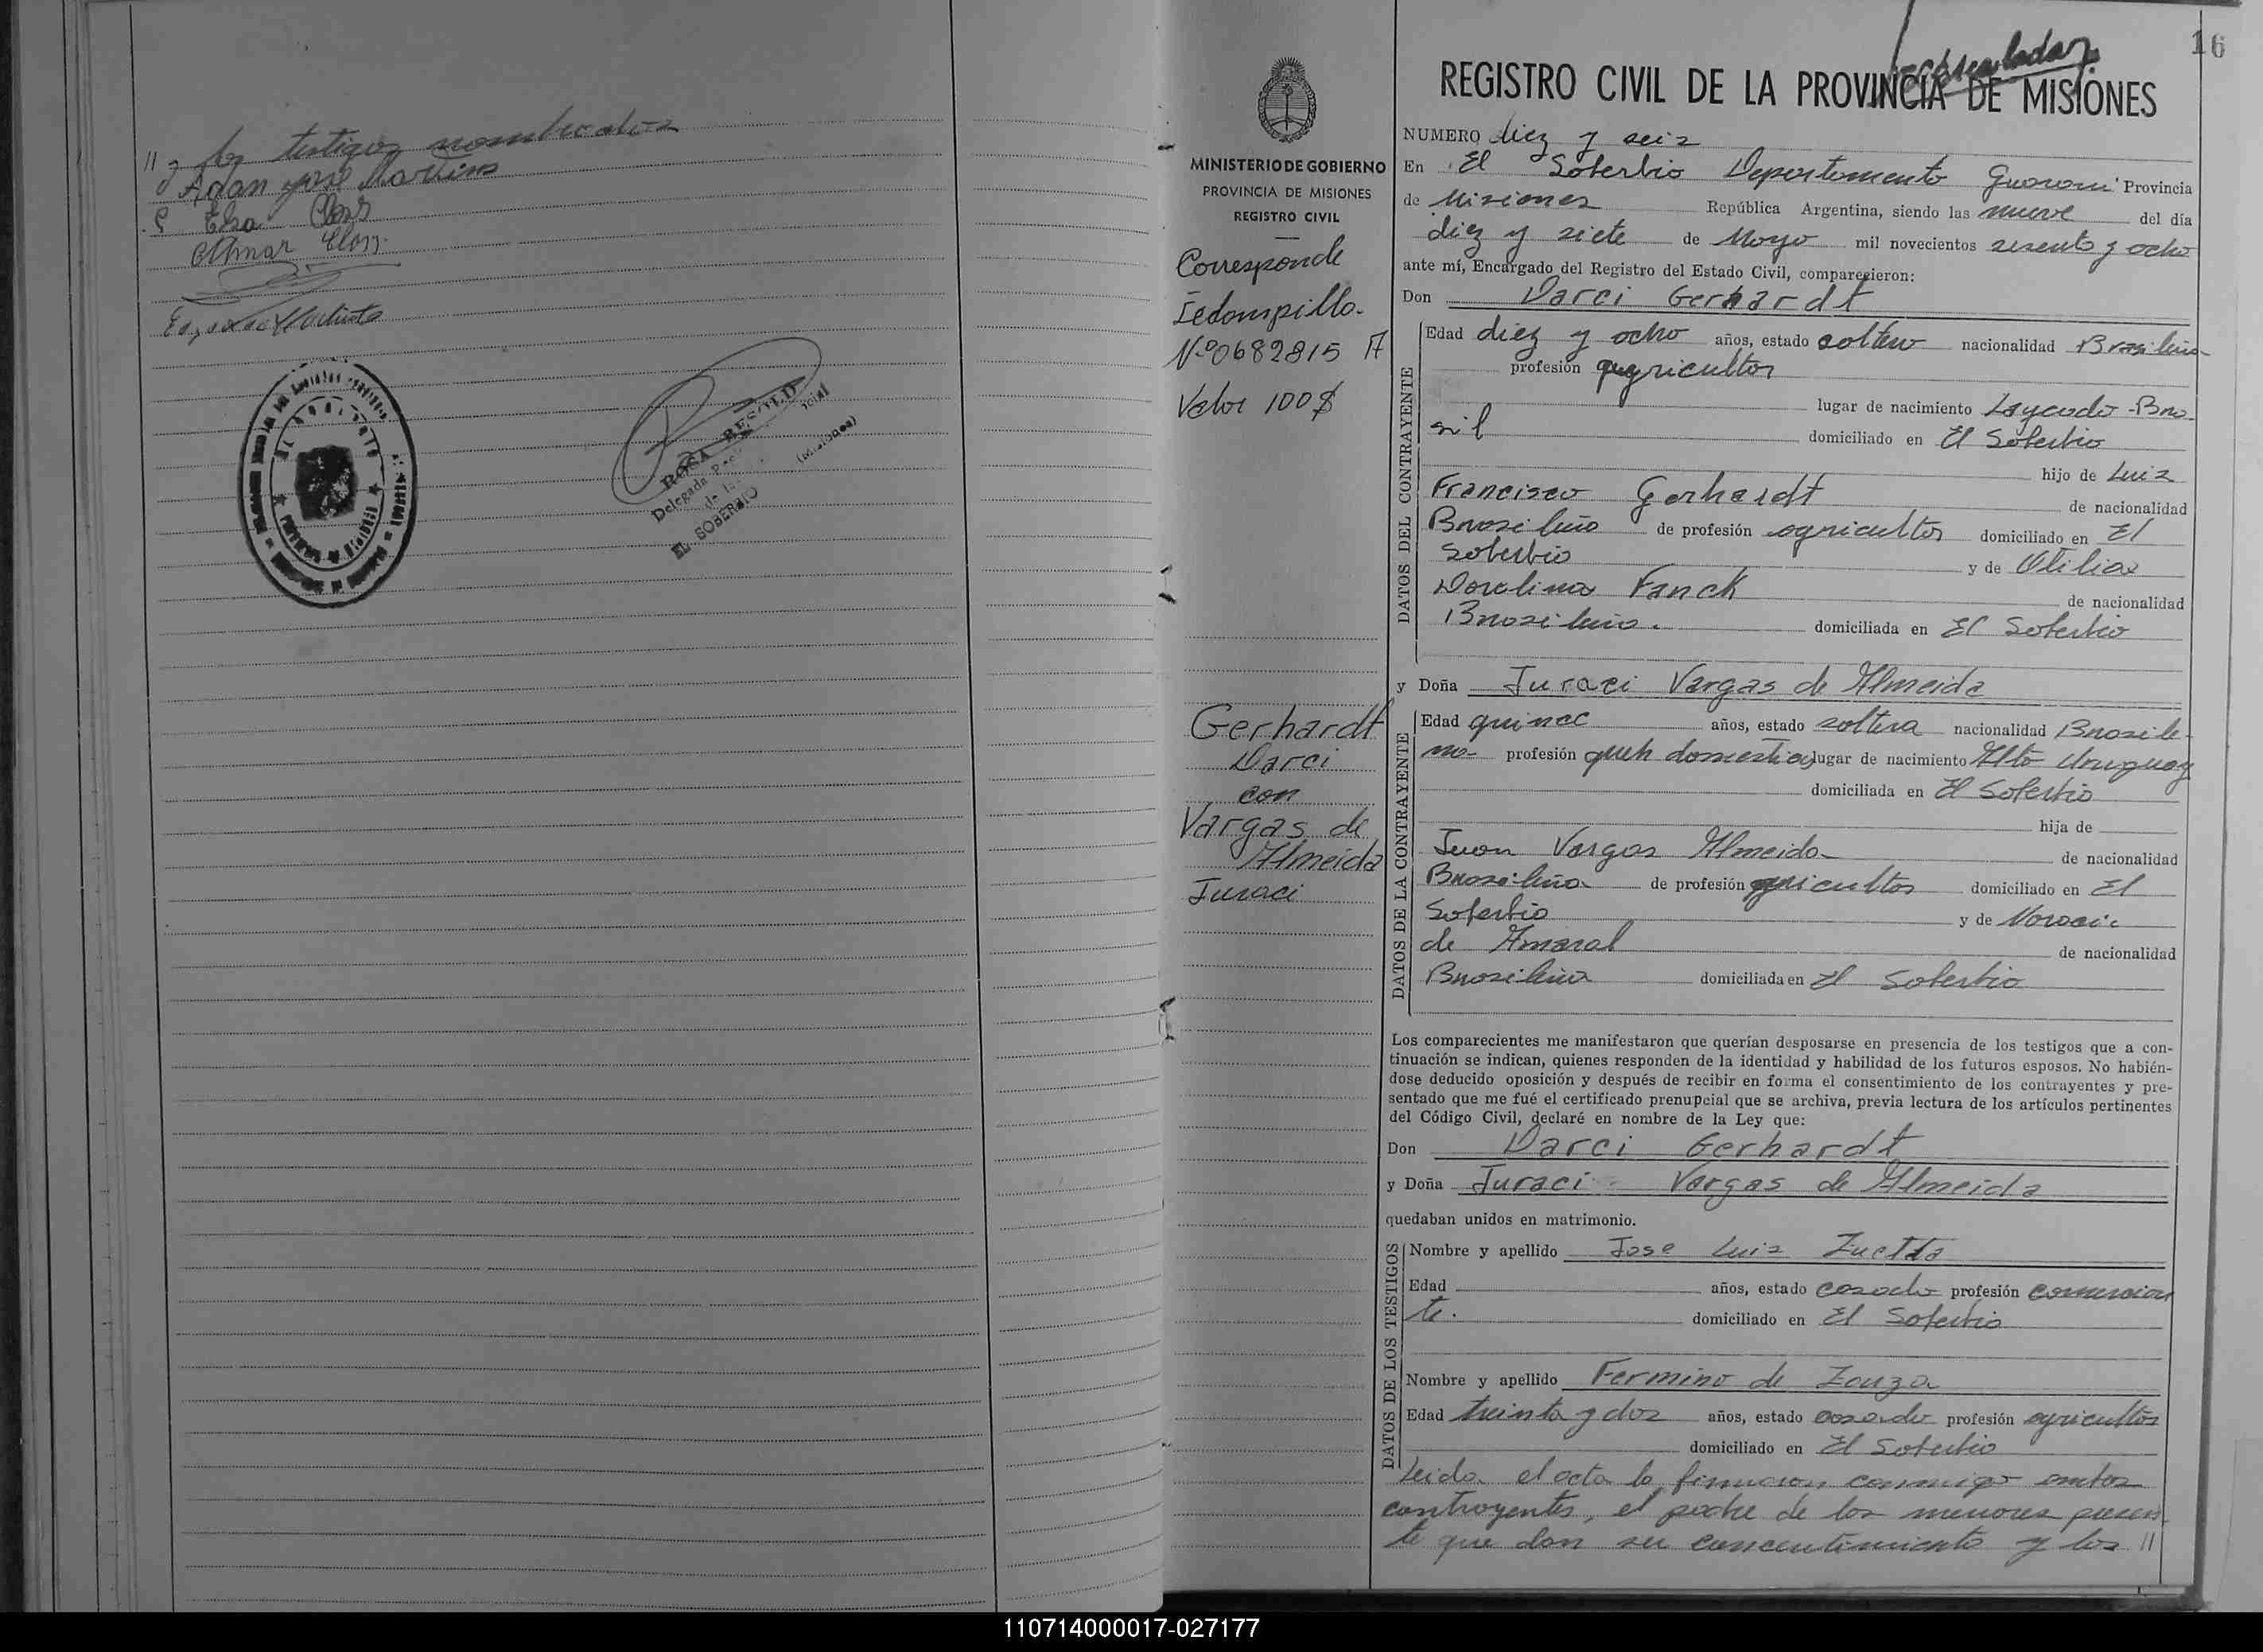 // y los testigos nombrados
Adan José Martins
Elsa Closs
Otmar Closs
ROSA BESOLD
Delegada
EL SOBERBIO
(Misiones)
16
REGISTRO CIVIL DE LA PROVINCIA DE MISIONES
MINISTERIO DE GOBIERNO
PROVINCIA DE MISIONES
REGISTRO CIVIL
Corresponde
Nº 0682815 A
Valor 100 $
Gerhardt
Darci
con
Vargas de
Almeida
Juraci
NUMERO diez y seis
En El Soberbio Departamento Guarani Provincia
de Misiones República Argentina, siendo las nueve del día
diez y siete de Mayo mil novecientos sesenta y ocho
ante mí, Encargado del Registro del Estado Civil, comparecieron:
Don Darci Gerhardt
DATOS DEL CONTRAYENTE
Edad diez y ocho años, estado soltero nacionalidad Brasileña
profesión agricultor
lugar de nacimiento Lageado - Bra-
sil domiciliado en El Soberbio
hijo de Luis
Francisco Gerhardt de nacionalidad
Brasileña de profesión agricultor domiciliado en El
Soberbio y de Otilia
Dorolina Fanck de nacionalidad
Brasileña. domiciliada en El Soberbio
y Doña Juraci Vargas de Almeida
DATOS DE LA CONTRAYENTE
Edad quince años, estado soltera nacionalidad Brasile-
ña- profesión queh domestico lugar de nacimiento Alto Uruguay
domiciliada en El Soberbio
hija de
Juan Vargas Almeida de nacionalidad
Brasileña de profesión agricultor domiciliado en El
Soberbio y de
de Amaral de nacionalidad
Brasileña domiciliada en El Soberbio
Los comparecientes me manifestaron que querían desposarse en presencia de los testigos que a con-
tinuación se indican, quienes responden de la identidad y habilidad de los futuros esposos. No habién-
dose deducido oposición y después de recibir en forma el consentimiento de los contrayentes y pre-
sentado que me fué el certificado prenupcial que se archiva, previa lectura de los artículos pertinentes
del Código Civil, declaré en nombre de la Ley que:
Don Darci Gerhardt
y Doña Juraci Vargas de Almeida
quedaban unidos en matrimonio.
DATOS DE LOS TESTIGOS
Nombre y apellido Jose Luis
Edad años, estado casado profesión comercian
te. domiciliado en El Soberbio
Nombre y apellido Fermino de Zouza
Edad treinta y dos años, estado casado profesión agricultor
domiciliado en El Soberbio
Leida el acta la firmaron conmigo ambos
contrayentes, el padre de los menores presen-
te que dan su concentimiento y los //
110714000017-027177